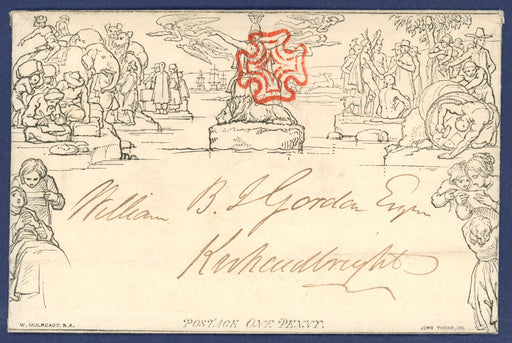 William B. I Gordon Esqre
Kirkcudbright
POSTAGE ONE PENNY.
W. MULREADY. R.A.
JOHN THOMPSON.